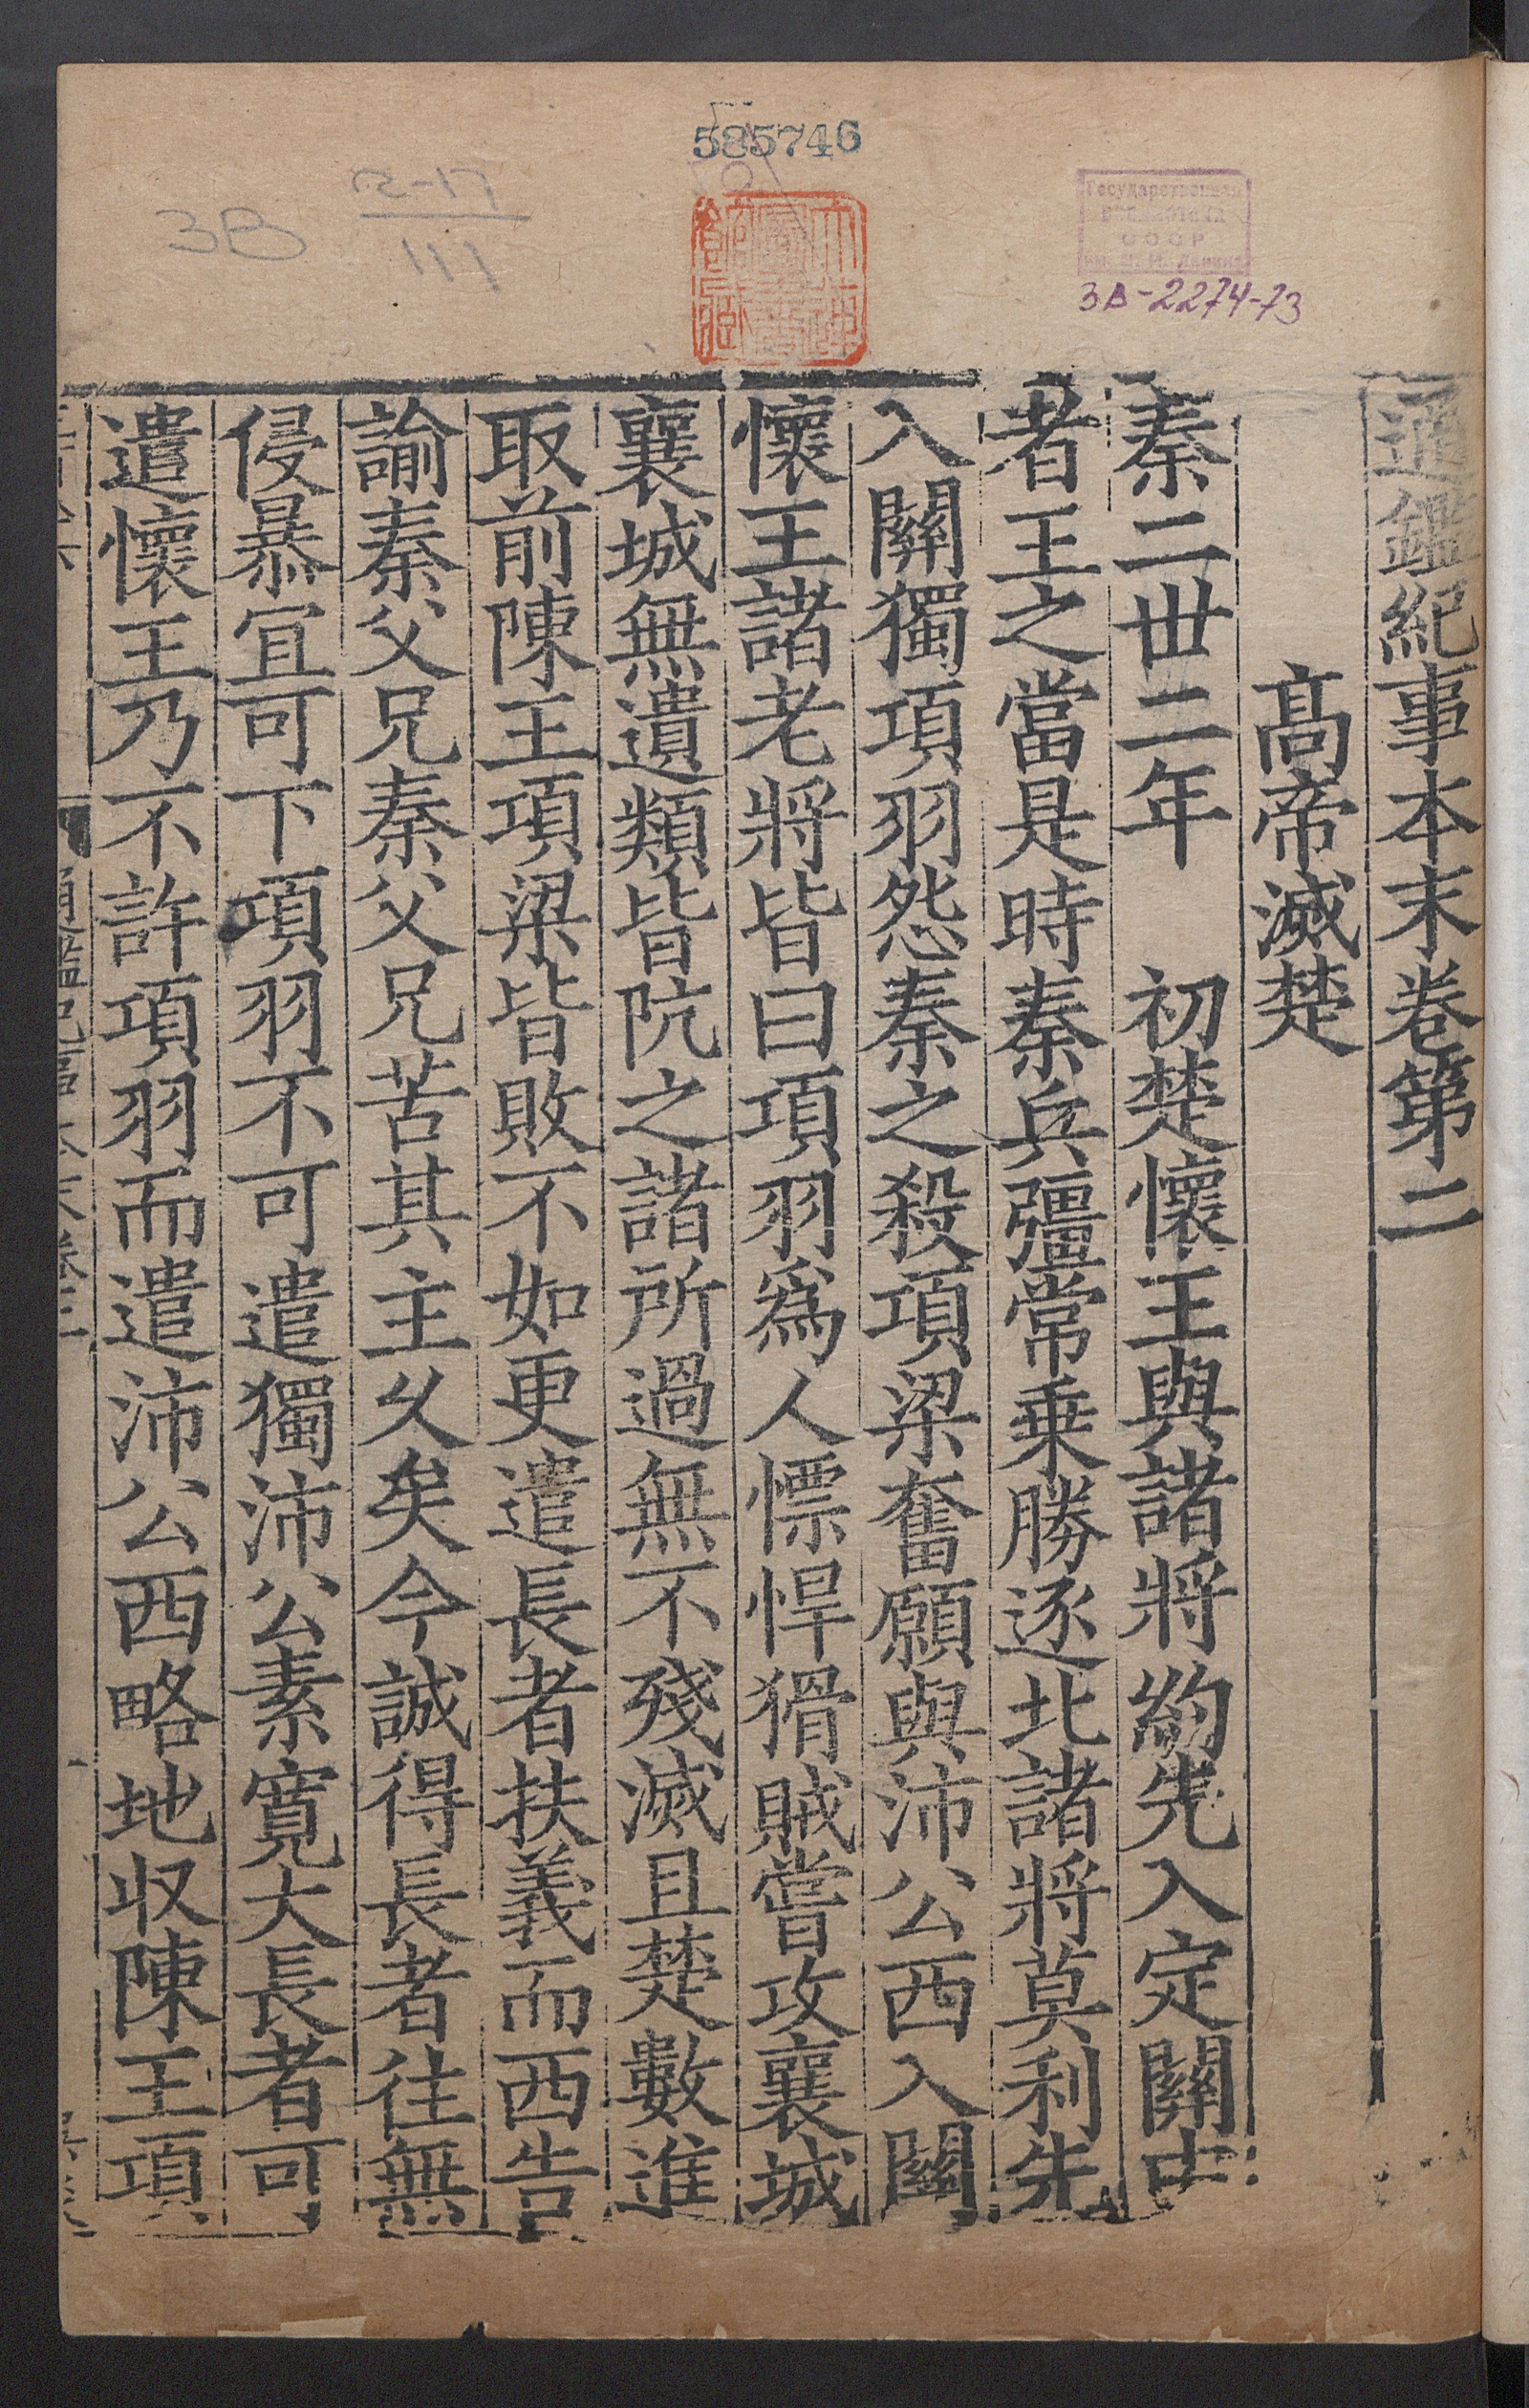 585746
3В
111
Государственная
библиотека
СССР
им. В. И. Ленина
3В-2274-73
通鑑紀事本末卷第二
高帝滅楚
秦二世二年 初楚懷王與諸將約先入定關中
者王之當是時秦兵彊常乗勝逐北諸將莫利先
入關獨項羽怨秦之殺項梁奮願與沛公西入關
懷王諸老將皆曰項羽爲人慓悍猾賊嘗攻襄城
襄城無遺類皆阬之諸所過無不殘滅且楚數進
取前陳王項梁皆敗不如更遣長者扶義而西告
諭秦父兄秦父兄苦其主久矣今誠得長者往無
侵暴宜可下項羽不可遣獨沛公素寛大長者可
遣懷王乃不許項羽而遣沛公西略地収陳王項